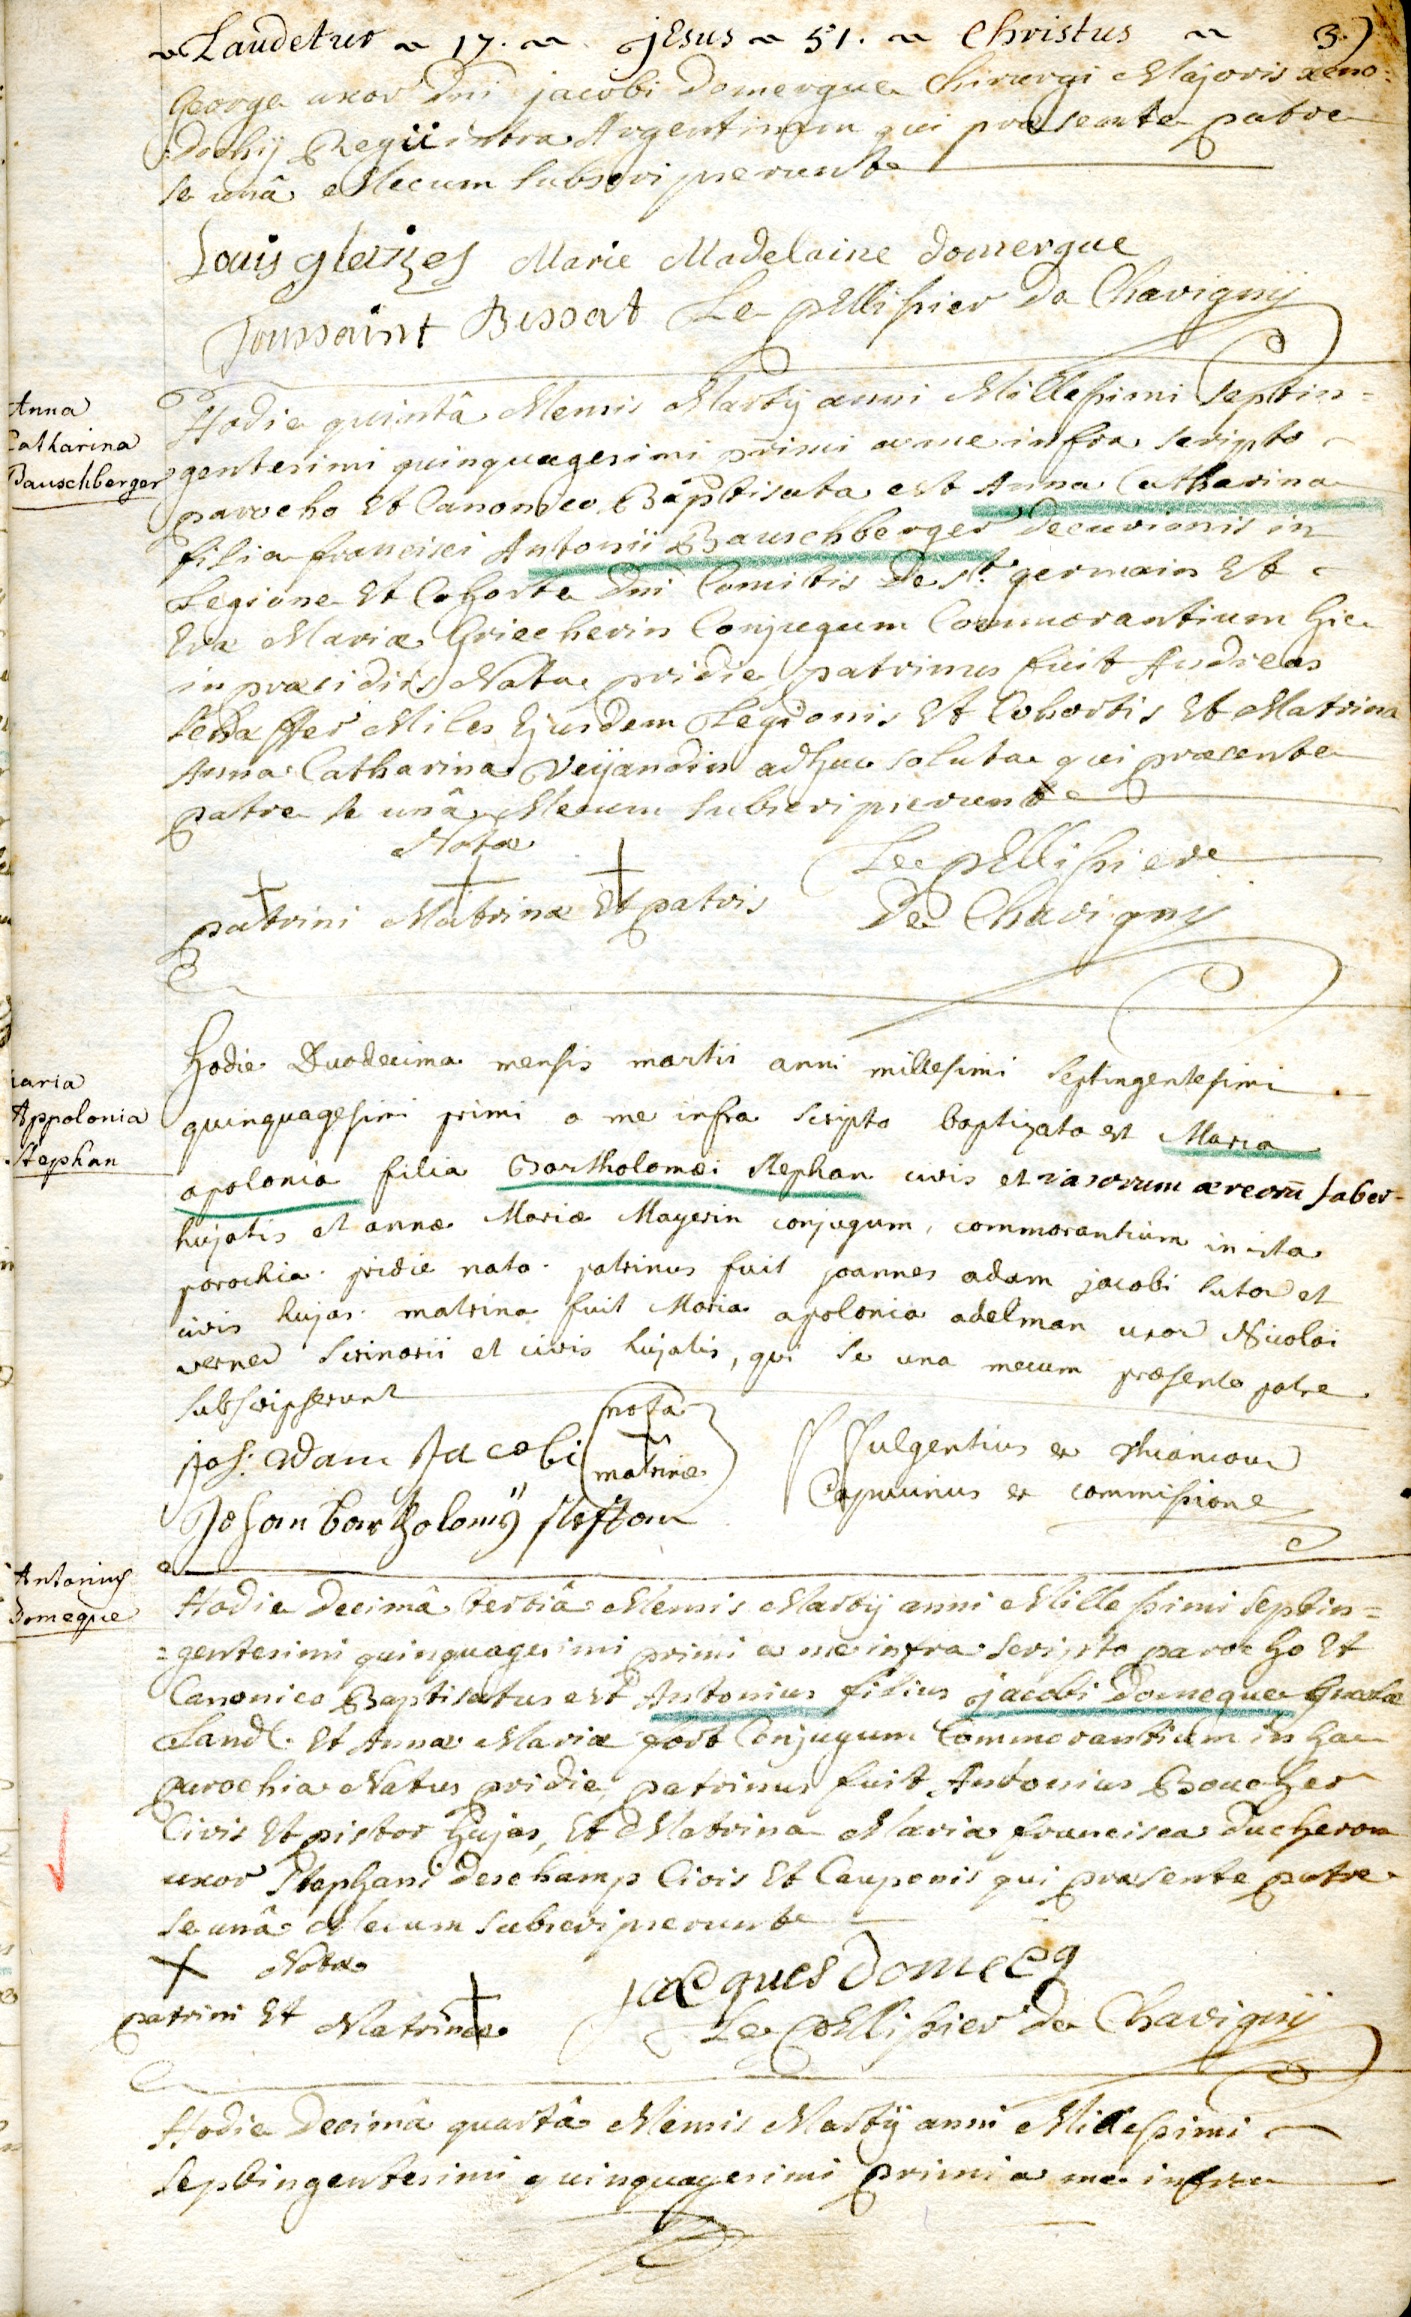 Laudetur 17. Jesus 51. Christus 3.)
George uxor Dni jacobi Domergue Chirurgi Majoris xeno=
=dochij Regii intra Argentinam qui præsente patre
se unâ Mecum subscripserunt
Louis glaizes Marie Madelaine Domergue
Toussaint Bussat Le pellissier De Chavigny
Anna
Catharina
Bauschberger
Hodie quintâ Mensis Martij anni Millesimi septin=
=gentesimi quinquagesimi primi a me infra scripto
parocho Et Canonico Baptisata est Anna Catharina
filia francisci Antonii Bauschberger Decurionis in
Legione Et Cohorte Dni Comitis De st. germain Et
Eva Maria Griecherin Conjugum Commorantium hic
in præsidiis Nata pridie patrinus fuit Andreas
Schaffer Miles Ejusdem Legionis Et Cohortis Et Matrina
Anna Catharina Veijandin adhuc soluta qui præsente
patre se unâ Mecum subscripserunt
Notæ
patrini Matrinæ Et patris
Le pellissier
De Chavigny
Maria
Appolonia
Stephan
hodie Duodecima mensis martii anni millesimi septingentesimi
quinquagesimi primi a me infra scripto baptizata est Maria
apolonia filia Bartholomæi Stephan civis et vasorum æreorū faber
hujatis et annæ Mariæ Mayerin conjugum, commorantium in ista
parochia. pridie nata. patrinus fuit joannes adam jacobi sutor et
civis hujas. matrina fuit Maria apolonia adelman uxor Nicolai
verner scrinarii et civis hujatis, qui se una mecum præsente patre
subscripserunt
joh: adam Jacobi
nota
matrinæ
Johan bartholomÿ steffan
F Fulgentius ex
Capucinus ex commissione
Antonius
Domeque
Hodie Decimâ tertiâ Mensis Martij anni Millesimi septin=
=gentesimi quinquagesimi primi a me infra scripto parocho Et
Canonico Baptisatus est Antonius filius jacobi Domeque
Et Annæ Mariæ fort Conjugum Commorantium in hac
parochia Natus pridie, patrinus fuit Antonius Boucher
Civis Et pistor hujas, Et Matrina Maria francisca Ducheron
uxor Stephani Deschamp Civis Et Cauponis qui præsente patre
se unâ Mecum subscripserunt
Notæ
patrini Et Matrinæ
jacques domecq
Le pellissier De Chavigny
Hodie Decimâ quartâ Mensis Martij anni Millesimi
septingentesimi quinquagesimi primi a me infra